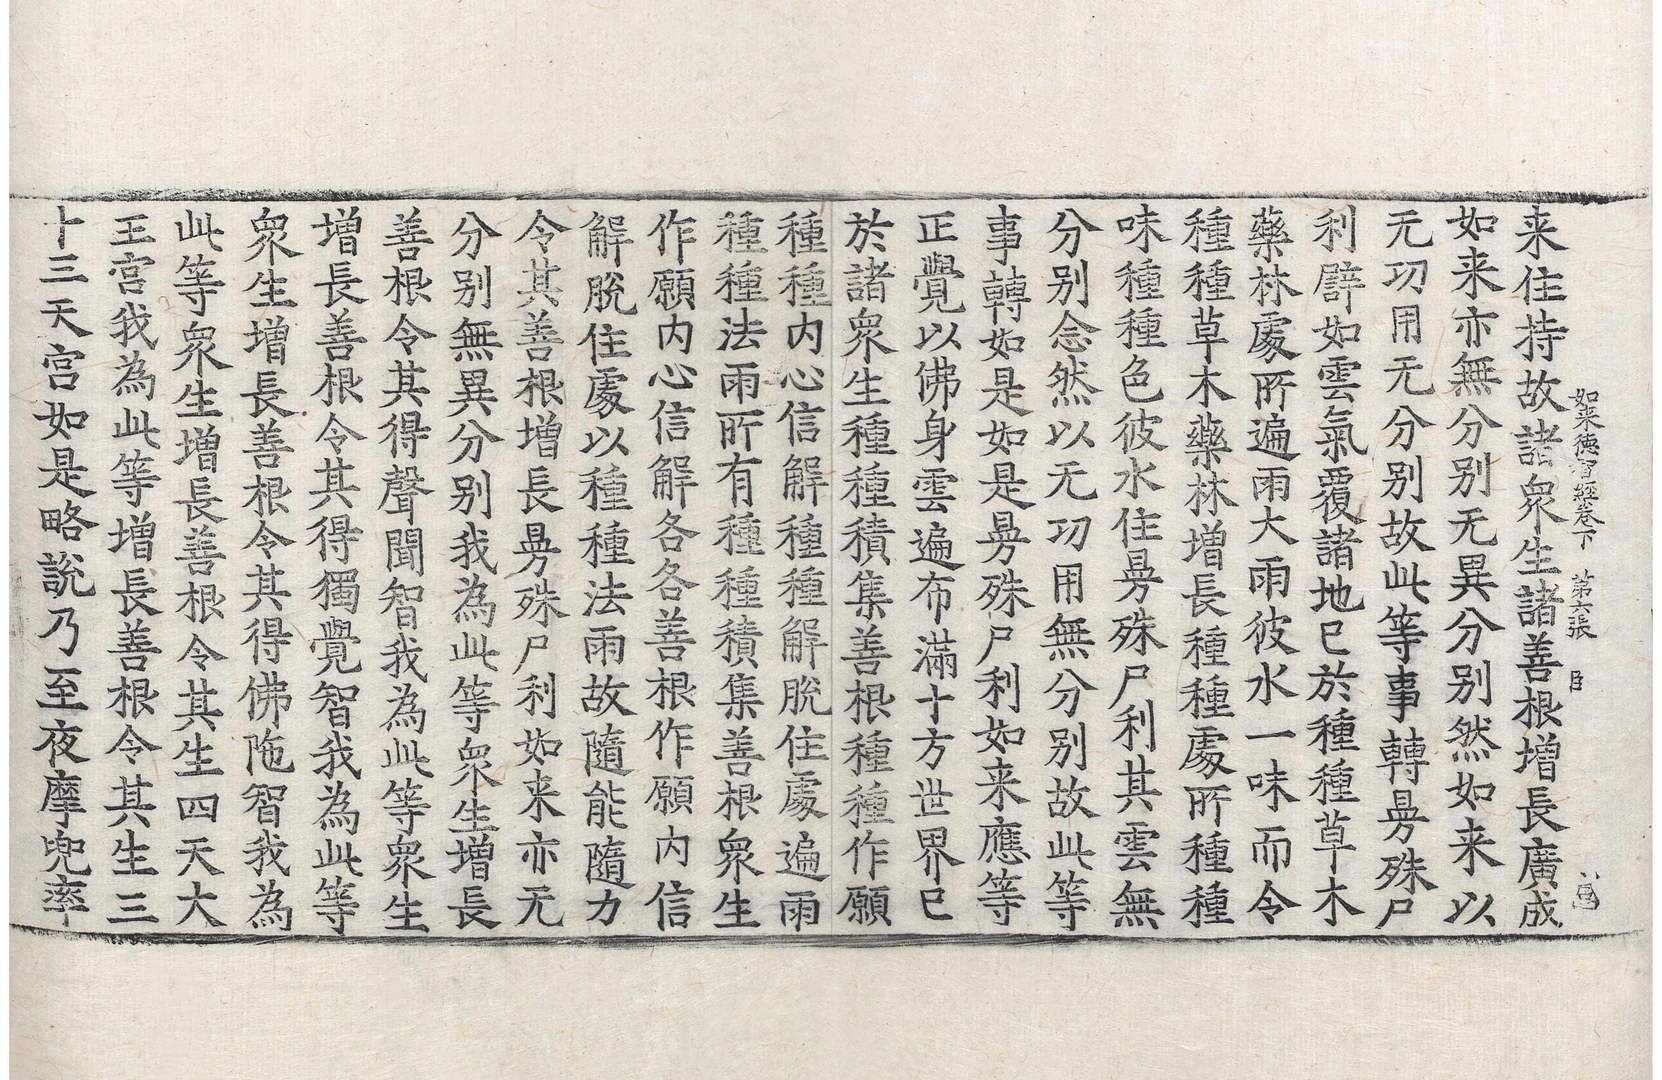 如来德智經卷下 第六張 臣
来住持故諸衆生諸善根增長廣成
如来亦無分别无異分别然如来以
无功用无分别故此等事轉㬅殊尸
利譬如雲氣覆諸地已於種種草木
藥林處所遍雨大雨彼水一味而令
種種草木藥林增長種種處所種種
味種種色彼水住㬅殊尸利其雲無
分别念然以无功用無分别故此等
事轉如是如是㬅殊尸利如来應等
正覺以佛身雲遍布滿十方世界已
於諸衆生種種積集善根種種作願
種種内心信解種種解脫住處遍雨
種種法雨所有種種積集善根衆生
作願内心信解各各善根作願内信
解脫住處以種種法雨故隨能隨力
令其善根增長㬅殊尸利如来亦无
分别無異分别我為此等衆生增長
善根令其得聲聞智我為此等衆生
增長善根令其得獨覺智我為此等
衆生增長善根令其得佛陁智我為
此等衆生增長善根令其生四天大
王宫我為此等增長善根令其生三
十三天宫如是略說乃至夜摩兜率